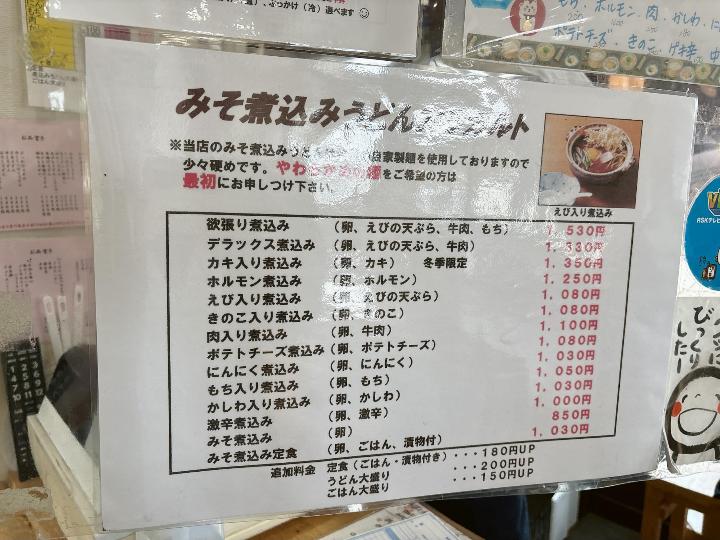 ぶっかけ(冷)選べます☺
ホルモン、肉、かしわ
ポテトチーズ、きのこ、
みそ煮込みうどん
※当店のみそ煮込みう 自家製麺を使用しておりますので
少々硬めです。やわ をご希望の方は
最初にお申しつけ下さい。
えび入り煮込み
欲張り煮込み (卵、えびの天ぷら、牛肉、もち) 1,530円
デラックス煮込み (卵、えびの天ぷら、牛肉) 1,330円
カキ入り煮込み (卵、カキ) 冬季限定 1,350円
ホルモン煮込み (卵、ホルモン) 1,250円
えび入り煮込み (卵、えびの天ぷら) 1,080円
きのこ入り煮込み (卵、きのこ) 1,080円
肉入り煮込み (卵、牛肉) 1,100円
ポテトチーズ煮込み (卵、ポテトチーズ) 1,080円
にんにく煮込み (卵、にんにく) 1,030円
もち入り煮込み (卵、もち) 1,050円
かしわ入り煮込み (卵、かしわ) 1,030円
激辛煮込み (卵、激辛) 1,000円
みそ煮込み (卵) 850円
みそ煮込み定食 (卵、ごはん、漬物付) 1,030円
追加料金 定食(ごはん・漬物付き)・・・180円UP
うどん大盛り ・・・200円UP
ごはん大盛り ・・・150円UP
RSKテレビ
びっくり
したー